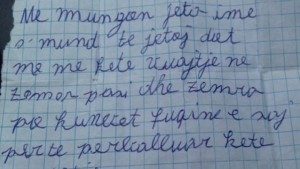 Me mungon jeta ime
o mund te jetoj dot
me me kete ruajtje ne
zemer pasi dhe zemra
po kunecet fuqine e saj
per te perballuar kete